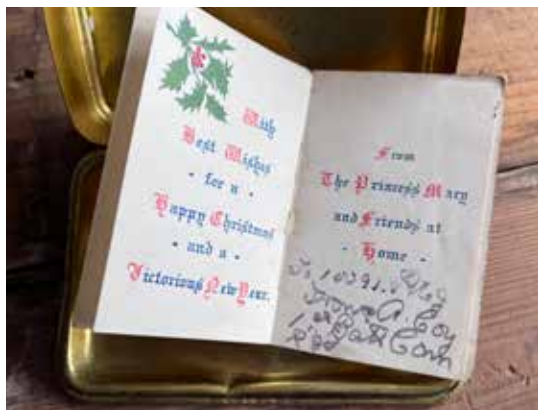 With
Best Wishes
· for a ·
Happy Christmas
· and a ·
Victorious New Year.
From
The Princess Mary
and Friends at
· Home ·
A. Coy